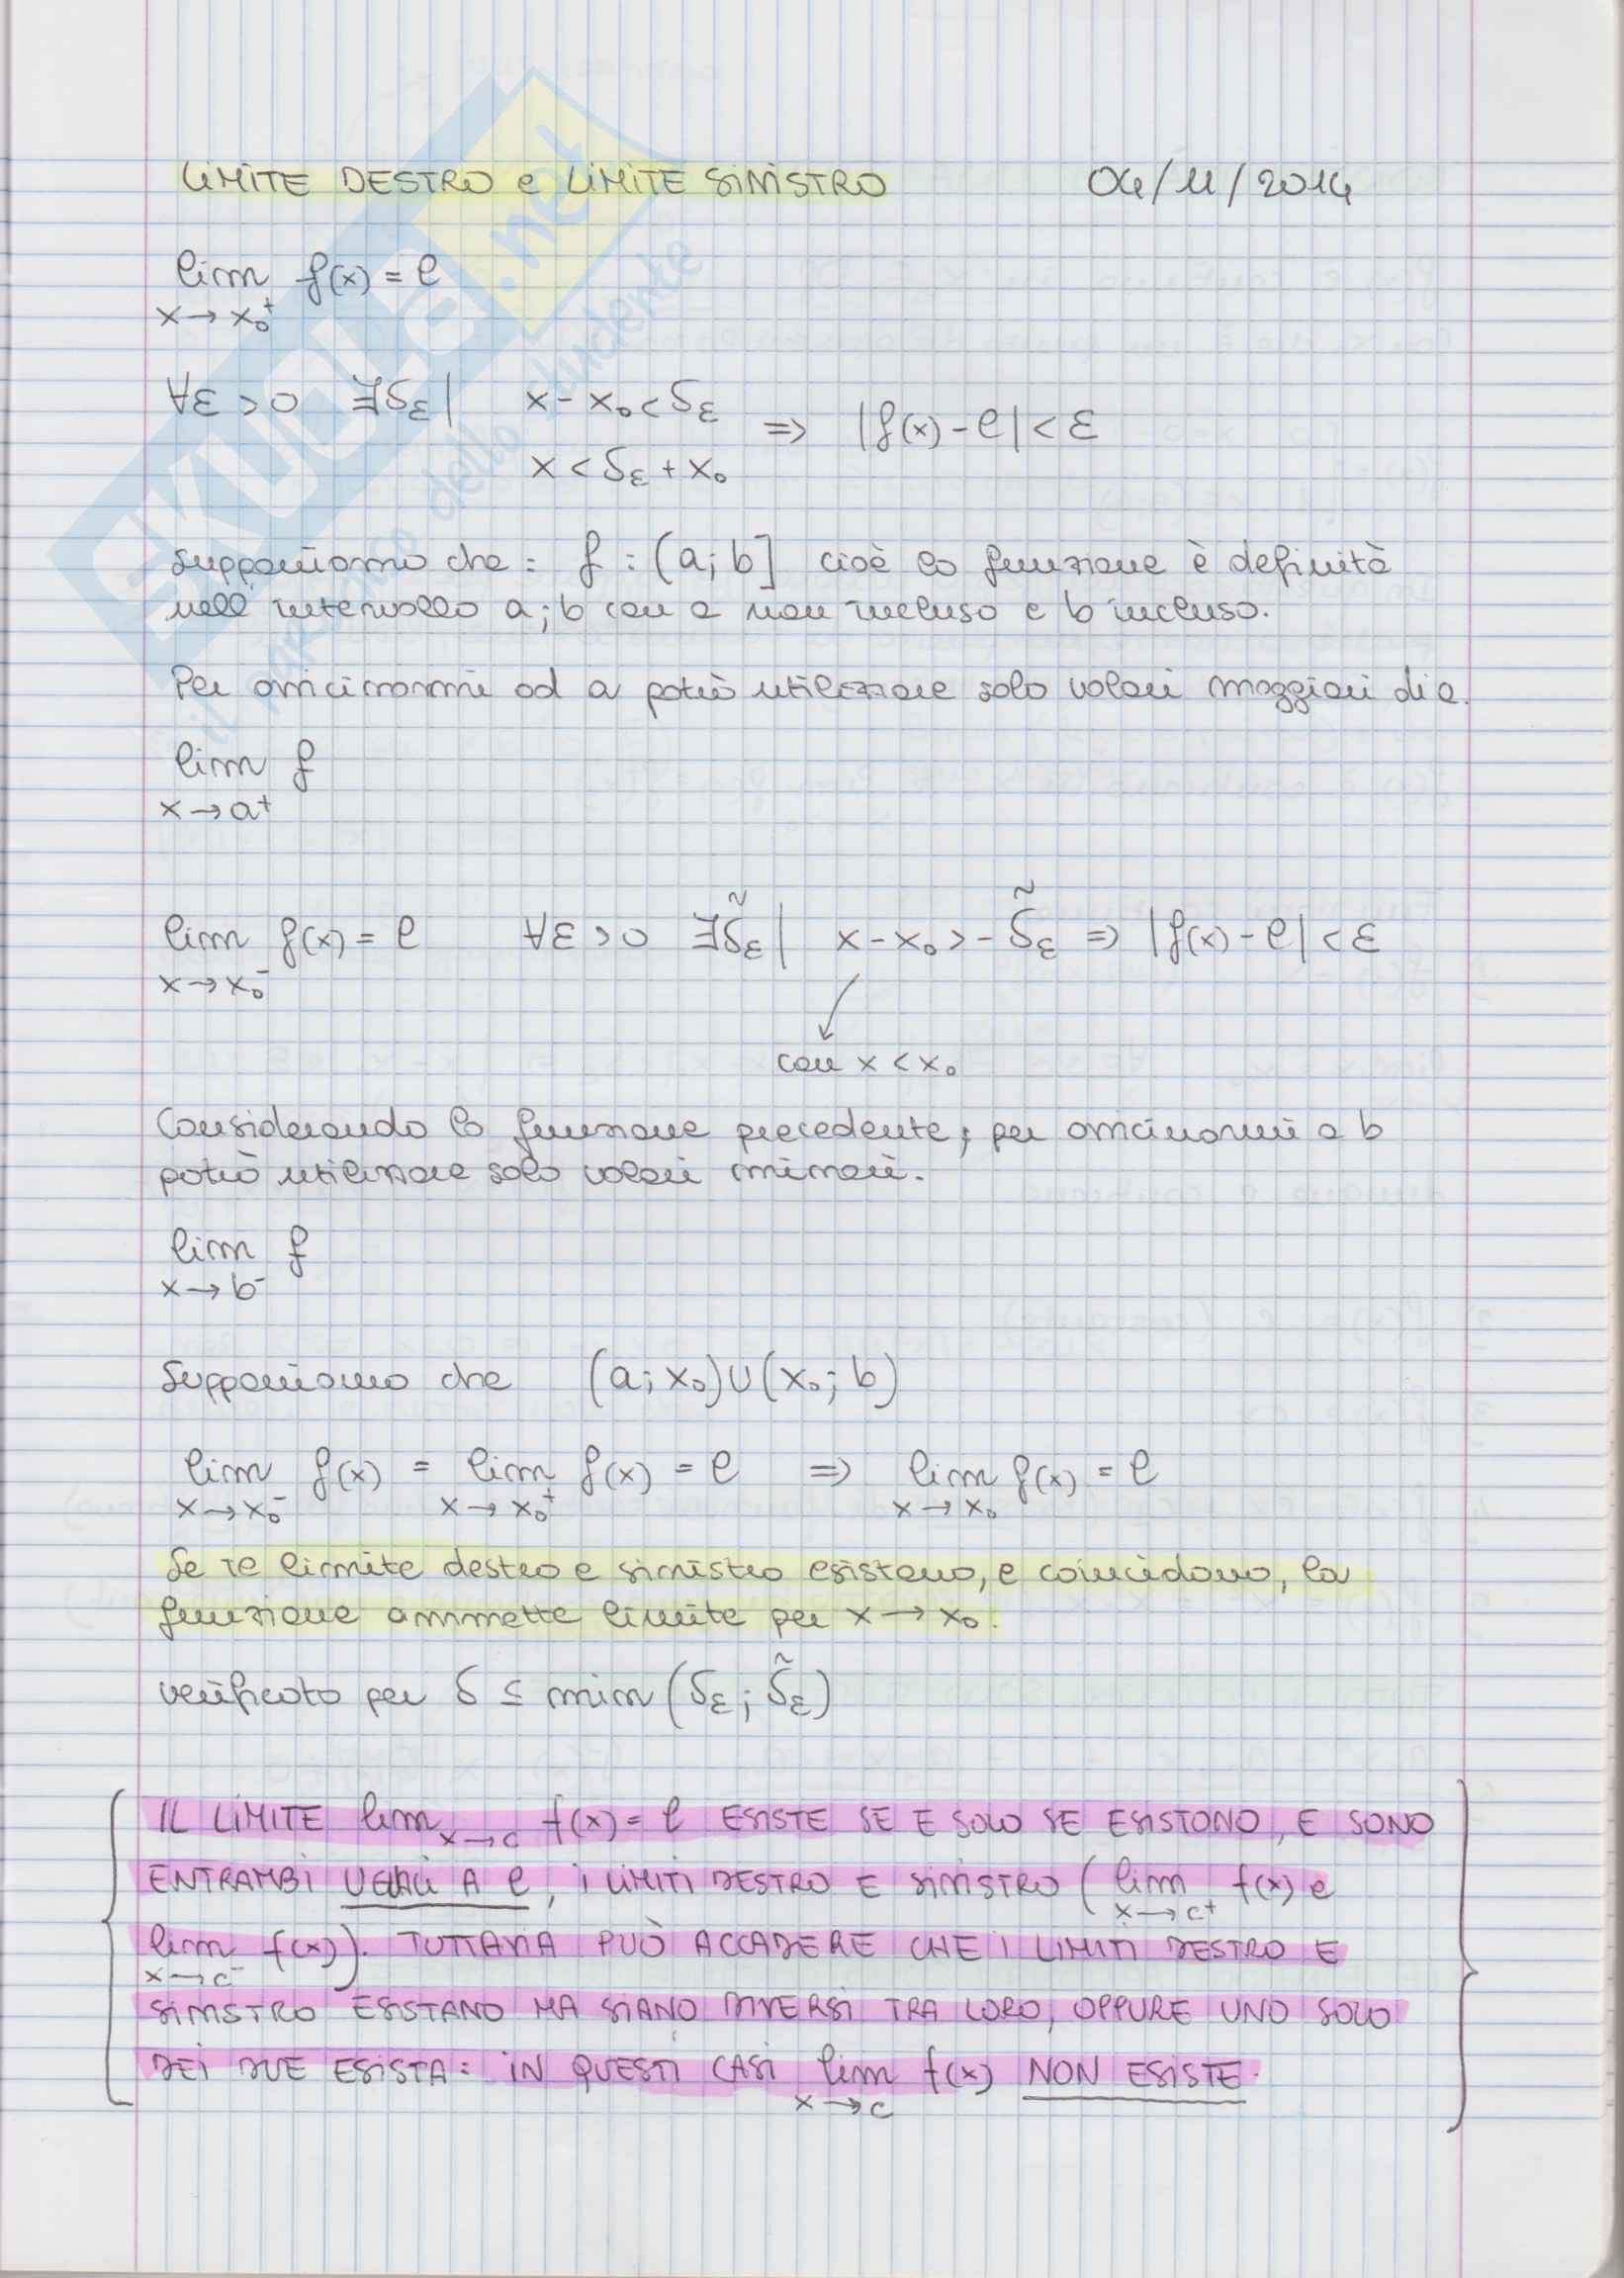 LIMITE DESTRO e LIMITE SINISTRO 04/11/2014
lim f(x) = l
x → x₀⁺
∀ε > 0 ∃δ_ε | x - x₀ < δ_ε ⇒ |f(x) - l| < ε
x < δ_ε + x₀
supponiamo che : f : (a; b] cioè la funzione è definita
nell'intervallo a; b con a non incluso e b incluso.
Per avvicinarmi ad a potrò utilizzare solo valori maggiori di a.
lim f
x → a⁺
lim f(x) = l ∀ε > 0 ∃δ̃_ε | x - x₀ > - δ̃_ε ⇒ |f(x) - l| < ε
x → x₀⁻
con x < x₀
Considerando la funzione precedente, per avvicinarmi a b
potrò utilizzare solo valori minori.
lim f
x → b⁻
Supponiamo che (a; x₀) ∪ (x₀; b)
lim f(x) = lim f(x) = l ⇒ lim f(x) = l
x → x₀⁻ x → x₀⁺ x → x₀
Se il limite destro e sinistro esistono, e coincidono, la
funzione ammette limite per x → x₀.
verificato per δ ≤ min (δ_ε ; δ̃_ε)
IL LIMITE lim x→c f(x) = l ESISTE SE E SOLO SE ESISTONO, E SONO
ENTRAMBI UGUALI A l, I LIMITI DESTRO E SINISTRO (lim f(x) e
x → c⁺
lim f(x)). TUTTAVIA PUÒ ACCADERE CHE I LIMITI DESTRO E
x → c⁻
SINISTRO ESISTANO MA SIANO DIVERSI TRA LORO, OPPURE UNO SOLO
DEI DUE ESISTA: IN QUESTI CASI lim f(x) NON ESISTE.
x → c
SKUOLA.net
il paradiso dello studente